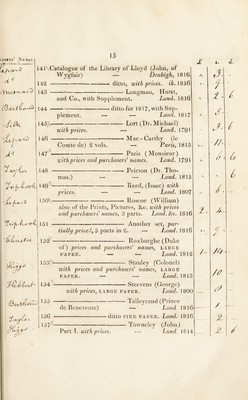 13
141 Catalogue of the Library of Lloyd (John, of
Wygfair) — Denbigh, 1816
142 ——— ditto, with prices. ib. 1816
143 ——— Longman, Hurst,
and Co., with Supplement. Lond. 1816
144 ——— ditto for 1817, with Sup-
plement. — — Lond. 1817
145 ——— Lort (Dr. Michael)
with prices. — Lond. 1791
146 ——— Mac-Carthy (le
Comte de) 2 vols. — Paris, 1815
147 ——— Paris (Monsieur)
with prices and purchasers' names. Lond. 1791
148 ——— Peirson (Dr. Tho-
mas.) — — Lond. 1815
149 ——— Reed, (Isaac) with
prices. — — Lond. 1807
150 ——— Roscoe (William)
also of the Prints, Pictures, &c. with prices
and purchasers' names, 3 parts. Lond. &c. 1816
151 ——— Another set, par-
tially priced, 3 parts in 2. — Lond. 1816
152 ——— Roxburghe (Duke
of) prices and purchasers' names, LARGE
PAPER. — — Lond. 1812
153 ——— Stanley (Colonel)
with prices and purchasers' names, LARGE
PAPER. — — Lond. 1813
154 ——— Steevens (George)
with prices, LARGE PAPER. Lond. 1800
155 ——— Talleyrand (Prince
de Benevente) — — Lond. 1816
156 ——— ditto FINE PAPER. Lond. 1816
157 ——— Towneley (John)
Part I. with prices. — Lond. 1814